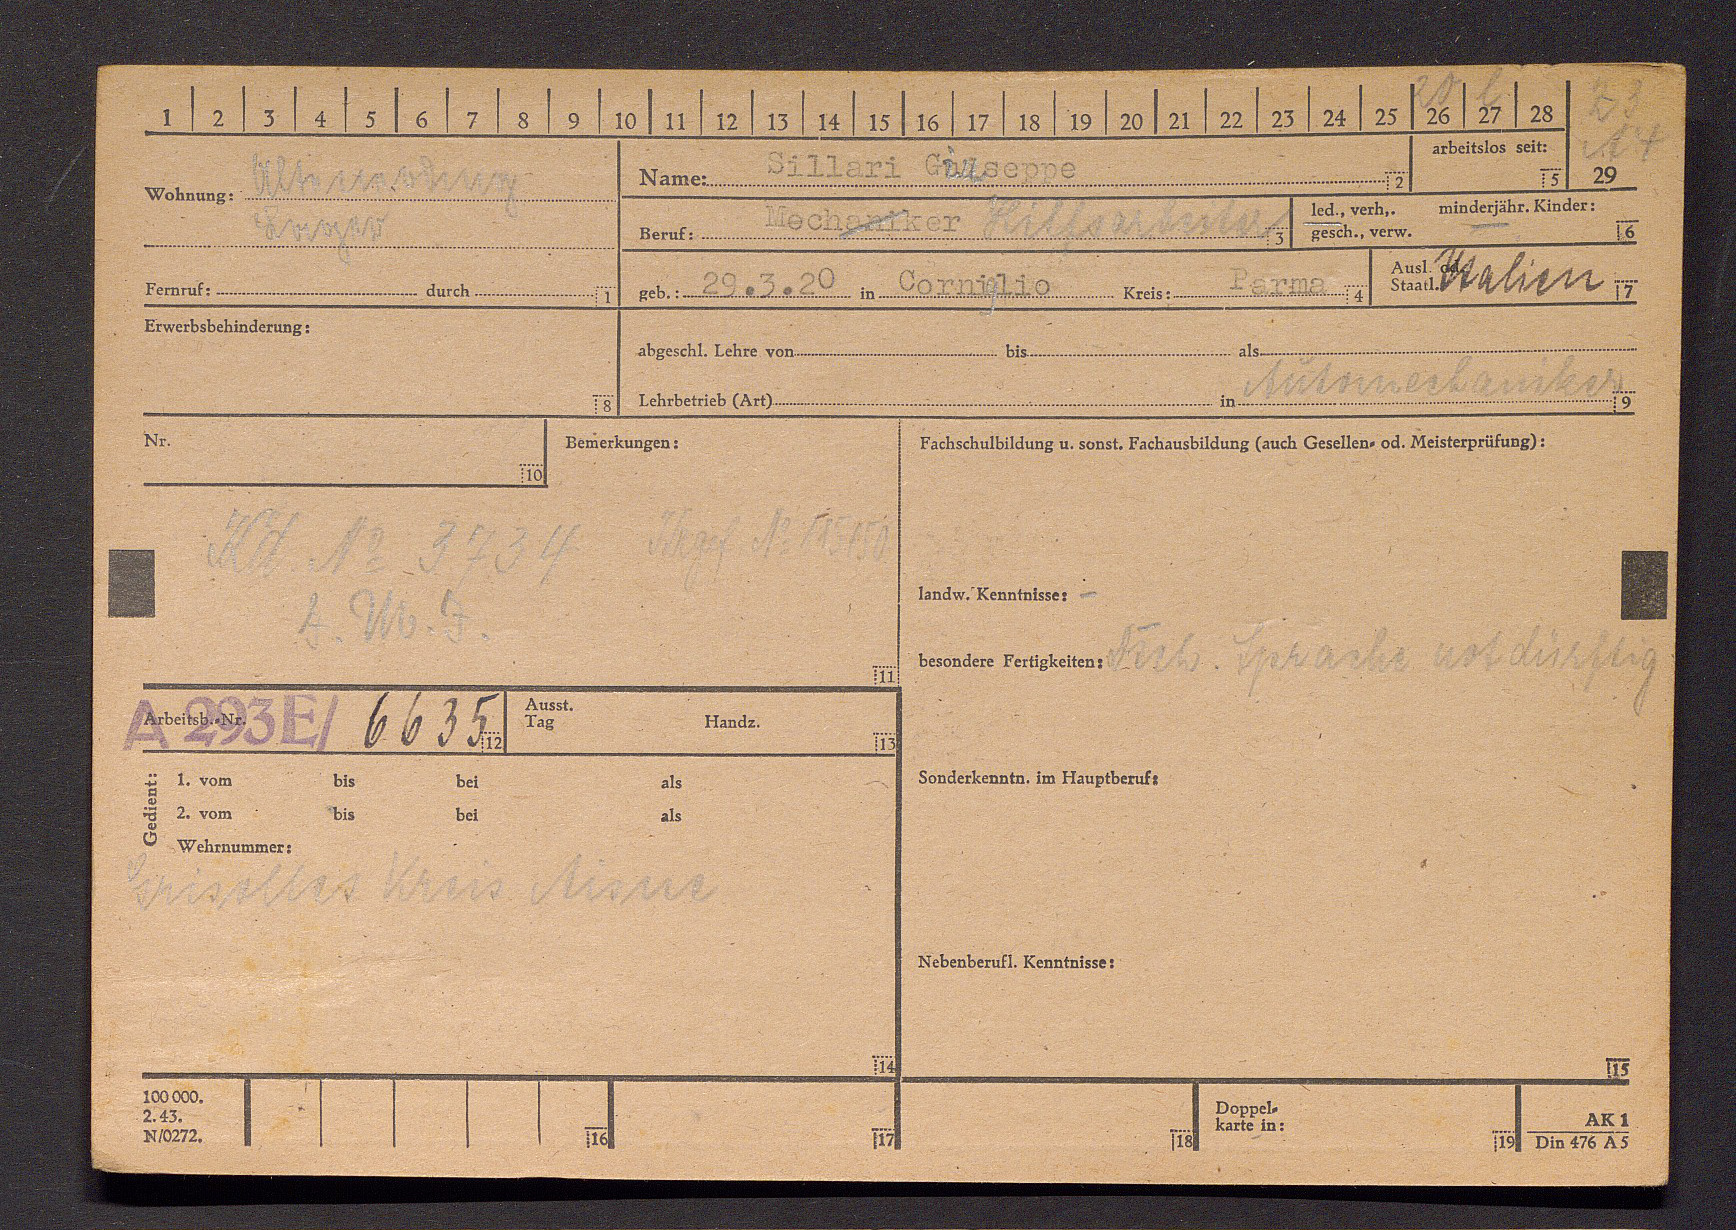 1 2 3 4 5 6 7 8 9 10 11 12 13 14 15 16 17 18 19 20 21 22 23 24 25 26 27 28
29
Wohnung:
Fernruf: durch 1
Name: Sillari Giuseppe 2
arbeitslos seit: 5
Beruf: Mechaniker Hilfsarbeiter 3
led., verh,. minderjähr. Kinder: —
gesch., verw. 6
geb.: 29.3.20 in Corniglio Kreis: Parma 4
Ausl. od.
Staatl. Italien 7
Erwerbsbehinderung:
8
abgeschl. Lehre von bis als
Automechaniker
Lehrbetrieb (Art) in 9
Nr.
10
Bemerkungen:
No 3734
11
Fachschulbildung u. sonst. Fachausbildung (auch Gesellen- od. Meisterprüfung):
landw. Kenntnisse: –
besondere Fertigkeiten: Dtsch. Sprache notdürftig
Sonderkenntn. im Hauptberuf:
Nebenberufl. Kenntnisse:
15
Arbeitsb.-Nr. A 293E/ 6635 12
Ausst.
Tag Handz.
13
Gedient:
1. vom bis bei als
2. vom bis bei als
Wehrnummer:
Kreis Aisne
14
100 000.
2. 43.
N/0272.
16 17 18
Doppel-
karte in:
19
AK 1
Din 476 A 5